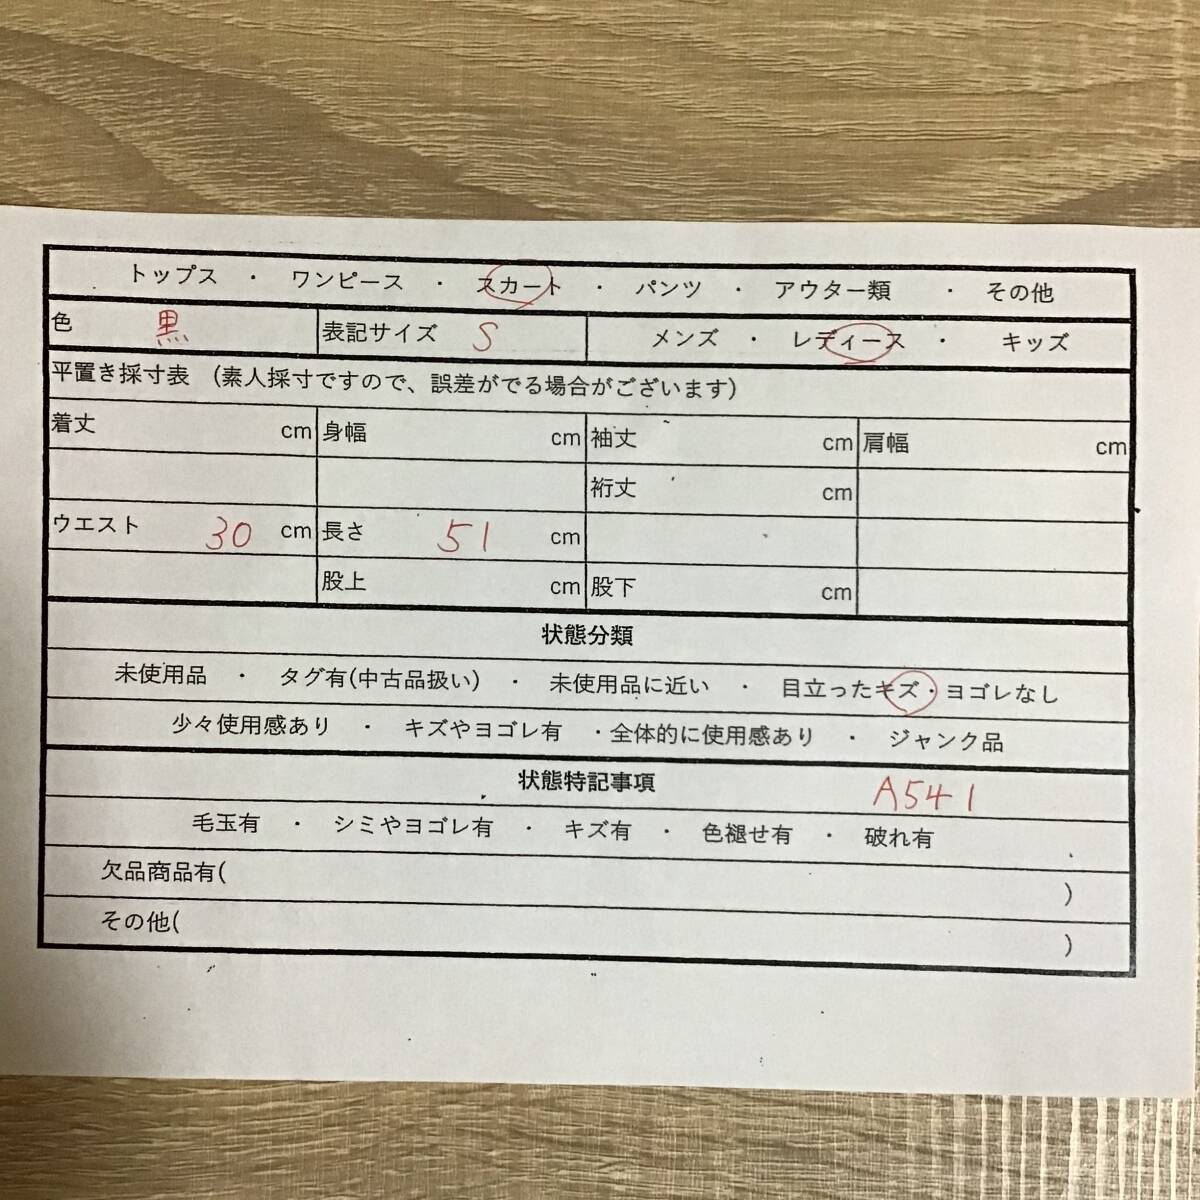 トップス ・ ワンピース ・ スカート ・ パンツ ・ アウター類 ・ その他
色 黒 表記サイズ S メンズ ・ レディース ・ キッズ
平置き採寸表 (素人採寸ですので、誤差がでる場合がございます)
着丈 cm 身幅 cm 袖丈 cm 肩幅 cm
裄丈 cm
ウエスト 30 cm 長さ 51 cm
股上 cm 股下 cm
状態分類
未使用品 ・ タグ有(中古品扱い) ・ 未使用品に近い ・ 目立ったキズ・ヨゴレなし
少々使用感あり ・ キズやヨゴレ有 ・全体的に使用感あり ・ ジャンク品
状態特記事項 A541
毛玉有 ・ シミやヨゴレ有 ・ キズ有 ・ 色褪せ有 ・ 破れ有
欠品商品有( )
その他( )